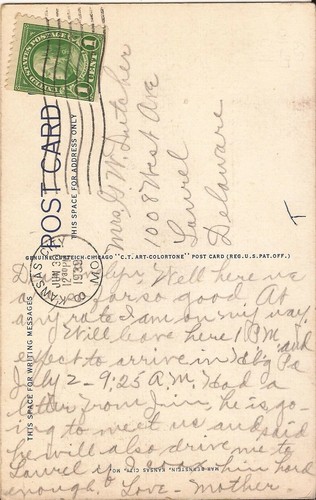 UNITED STATES POSTAGE
1 CENT 1
POST CARD
THIS SPACE FOR ADDRESS ONLY
Mrs G W Dutcher
1008 West Ave
Laurel
Delaware
GENUINE CURTEICH-CHICAGO "C.T. ART-COLORTONE" POST CARD (REG. U.S. PAT. OFF.)
KANSAS CITY MO.
JUN 30
12 30 PM
193
THIS SPACE FOR WRITING MESSAGES
Well here we
so far so good. At
any rate I am on my way.
Will leave here 1 P M and
expect to arrive in Hdbg Pa
July 2 - 9:25 A M. Had a
letter from Jim, he is go-
ing to meet us and said
he will also drive me to
Laurel if I him hard
enough. Love. Mother.
MAX BERNSTEIN, KANSAS CITY, MO.